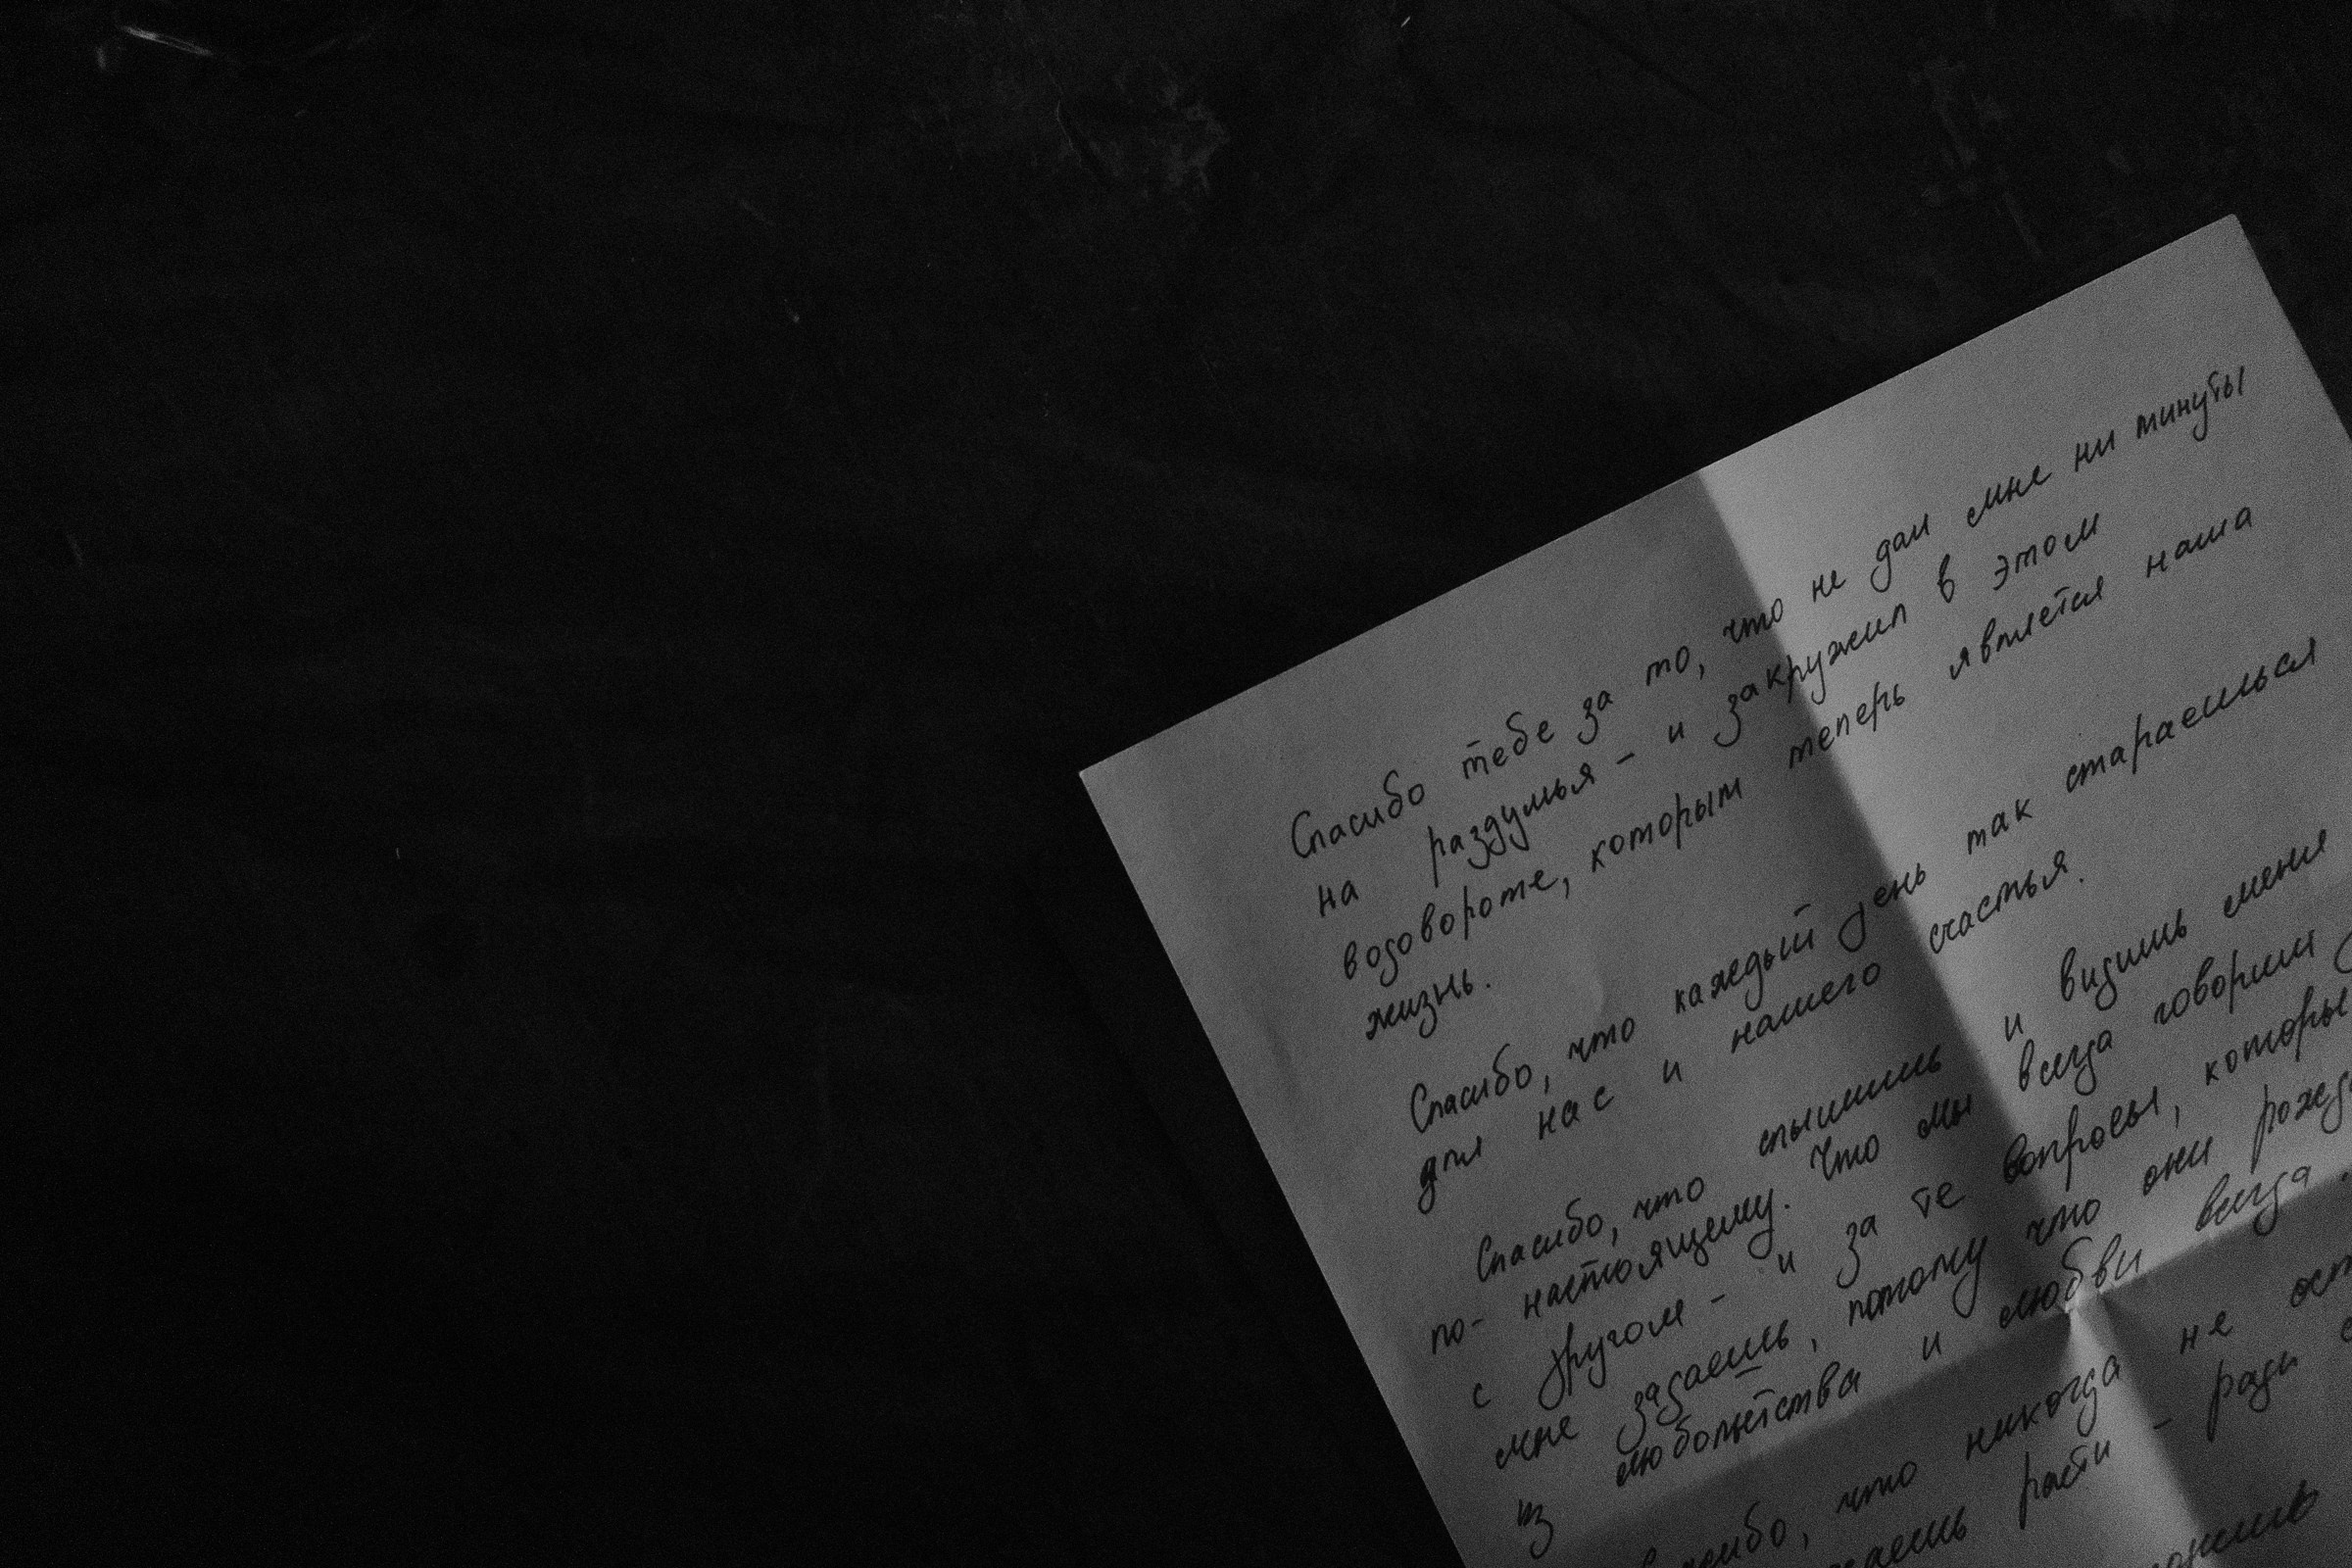 Спасибо тебе за то, что не дал мне ни минуты
на раздумья - и закружил в этом
водовороте, которым теперь является наша
жизнь.
Спасибо, что каждый день так стараешься
для нас и нашего счастья.
Спасибо, что слышишь и видишь меня
по-настоящему. Что мы всегда говорим
с другом - и за те вопросы, которы
мне задаешь, потому что они рожд
из любопытства и любви всегда.
что никогда не ост
расти - ради